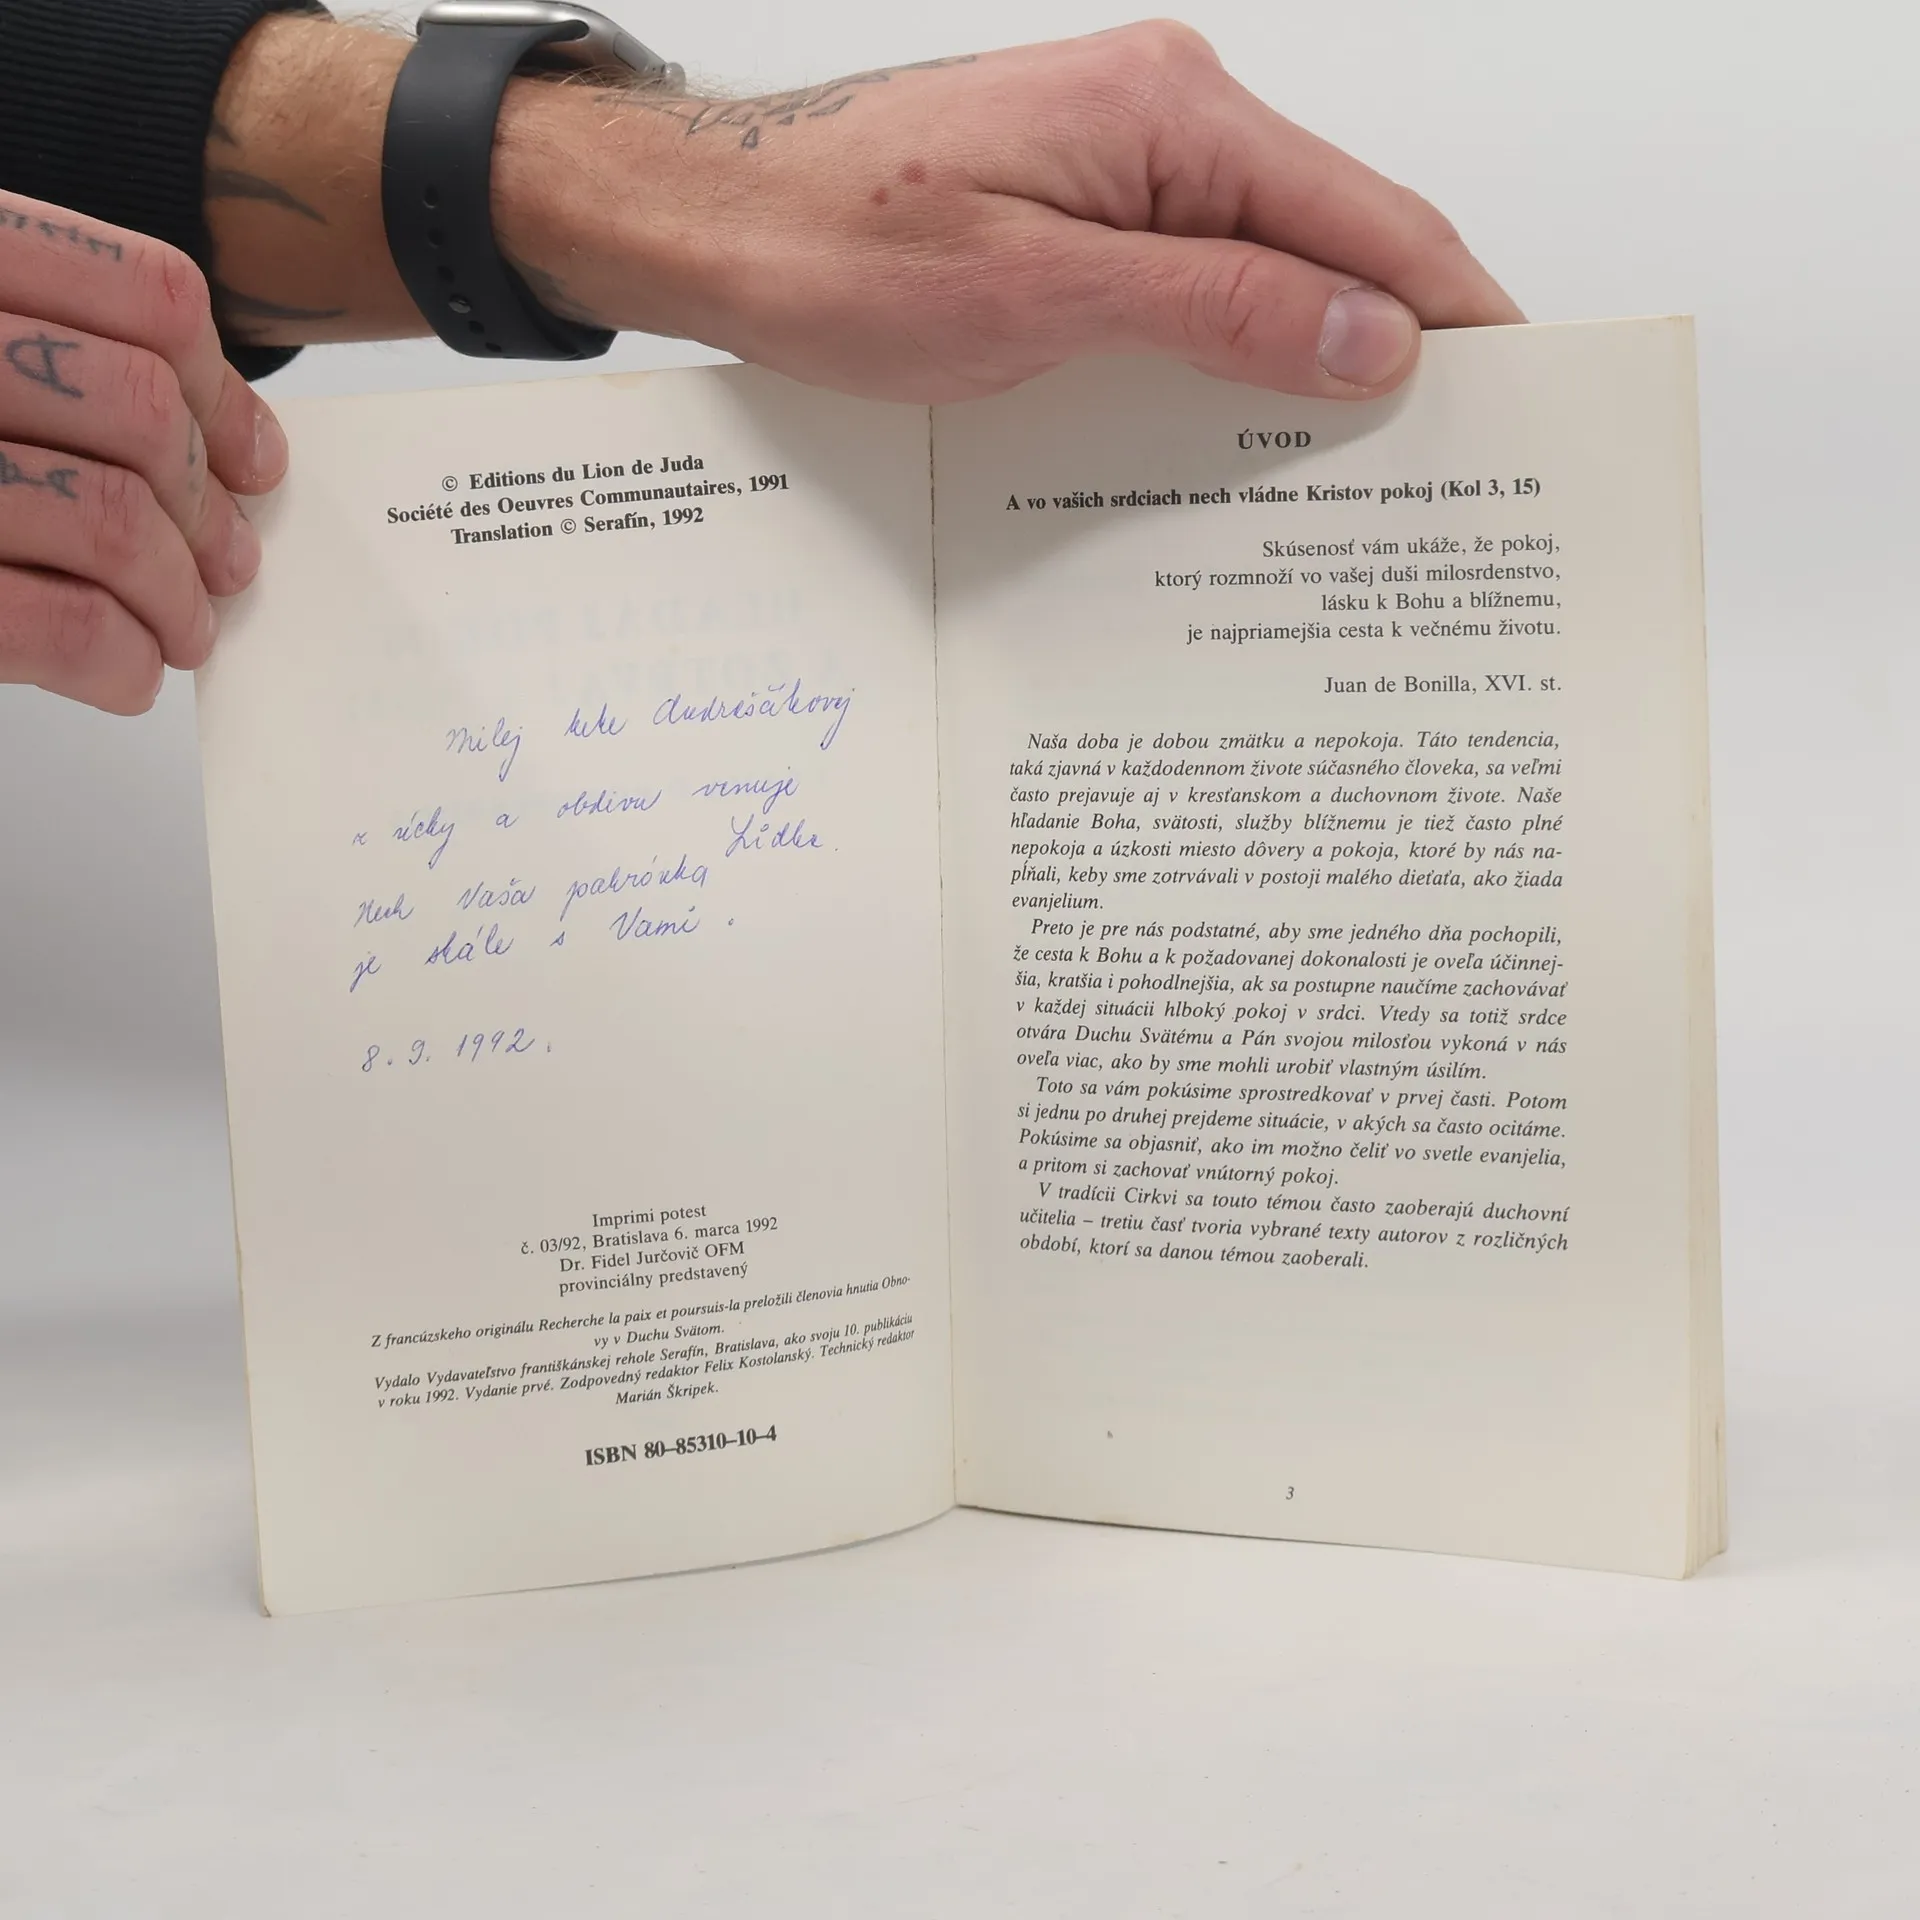 © Editions du Lion de Juda
Société des Oeuvres Communautaires, 1991
Translation © Serafín, 1992
Milej tete Andreščíkovej
z úcty a obdivu venuje
Lidka.
Nech Vaša patrónka
je stále s Vami.
8. 9. 1992.
Imprimi potest
č. 03/92, Bratislava 6. marca 1992
Dr. Fidel Jurčovič OFM
provinciálny predstavený
Z francúzskeho originálu Recherche la paix et poursuis-la preložili členovia hnutia Obno-
vy v Duchu Svätom.
Vydalo Vydavateľstvo františkánskej rehole Serafín, Bratislava, ako svoju 10. publikáciu
v roku 1992. Vydanie prvé. Zodpovedný redaktor Felix Kostolanský. Technický redaktor
Marián Škripek.
ISBN 80–85310–10–4
ÚVOD
A vo vašich srdciach nech vládne Kristov pokoj (Kol 3, 15)
Skúsenosť vám ukáže, že pokoj,
ktorý rozmnoží vo vašej duši milosrdenstvo,
lásku k Bohu a blížnemu,
je najpriamejšia cesta k večnému životu.
Juan de Bonilla, XVI. st.
Naša doba je dobou zmätku a nepokoja. Táto tendencia,
taká zjavná v každodennom živote súčasného človeka, sa veľmi
často prejavuje aj v kresťanskom a duchovnom živote. Naše
hľadanie Boha, svätosti, služby blížnemu je tiež často plné
nepokoja a úzkosti miesto dôvery a pokoja, ktoré by nás na-
pĺňali, keby sme zotrvávali v postoji malého dieťaťa, ako žiada
evanjelium.
Preto je pre nás podstatné, aby sme jedného dňa pochopili,
že cesta k Bohu a k požadovanej dokonalosti je oveľa účinnej-
šia, kratšia i pohodlnejšia, ak sa postupne naučíme zachovávať
v každej situácii hlboký pokoj v srdci. Vtedy sa totiž srdce
otvára Duchu Svätému a Pán svojou milosťou vykoná v nás
oveľa viac, ako by sme mohli urobiť vlastným úsilím.
Toto sa vám pokúsime sprostredkovať v prvej časti. Potom
si jednu po druhej prejdeme situácie, v akých sa často ocitáme.
Pokúsime sa objasniť, ako im možno čeliť vo svetle evanjelia,
a pritom si zachovať vnútorný pokoj.
V tradícii Cirkvi sa touto témou často zaoberajú duchovní
učitelia – tretiu časť tvoria vybrané texty autorov z rozličných
období, ktorí sa danou témou zaoberali.
3